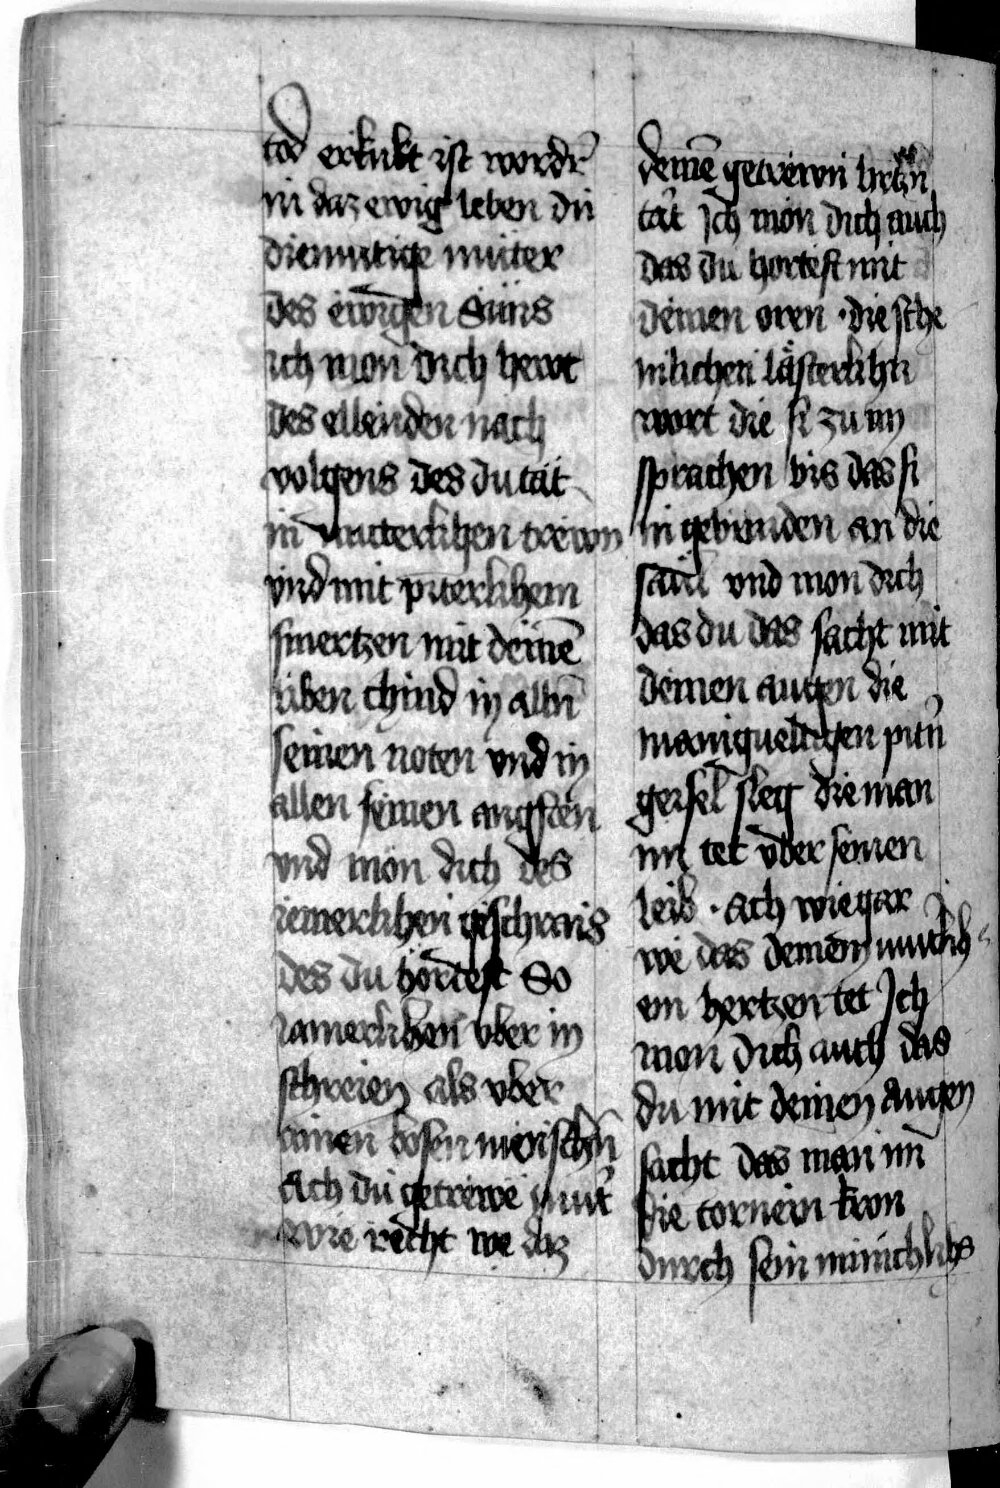 tod erkukt ist wordē
in daz ewig leben du
diemutige muter
des ewigen Suns
ich mon dich hewt
des ellenden nach
volgens des du tät
in muterlihen trewn
vnd mit piterlihem
smertzen mit deinē
liben chind in alln
seinen noten vnd in
allen seinen angsten
vnd mon dich des
iemerlihen geschrais
des du hördest So
iamerlihen vber in
schreien als vber
ainen bosen menschn̄
Ach du getrewe mut̄
wie recht we daz
deinē getrewn hrtzn̄
tät Ich mon dich auch
das du hortest mit
deinen oren · die sche
milichen lästerlihn
wort die si zu im
sprachen bis das si
in gebunden an die
saul vnd mon dich
das du das sacht mit
deinen augen die
manigueltigen pitn̄
geisel sleg die man
im tet vber seinen
leib · Ach wie gar
we das deinem mutlih
em hertzen tet Ich
mon dich auch das
du mit deinen Augen
sacht das man im
die tornein kron
durch sein minichlihs